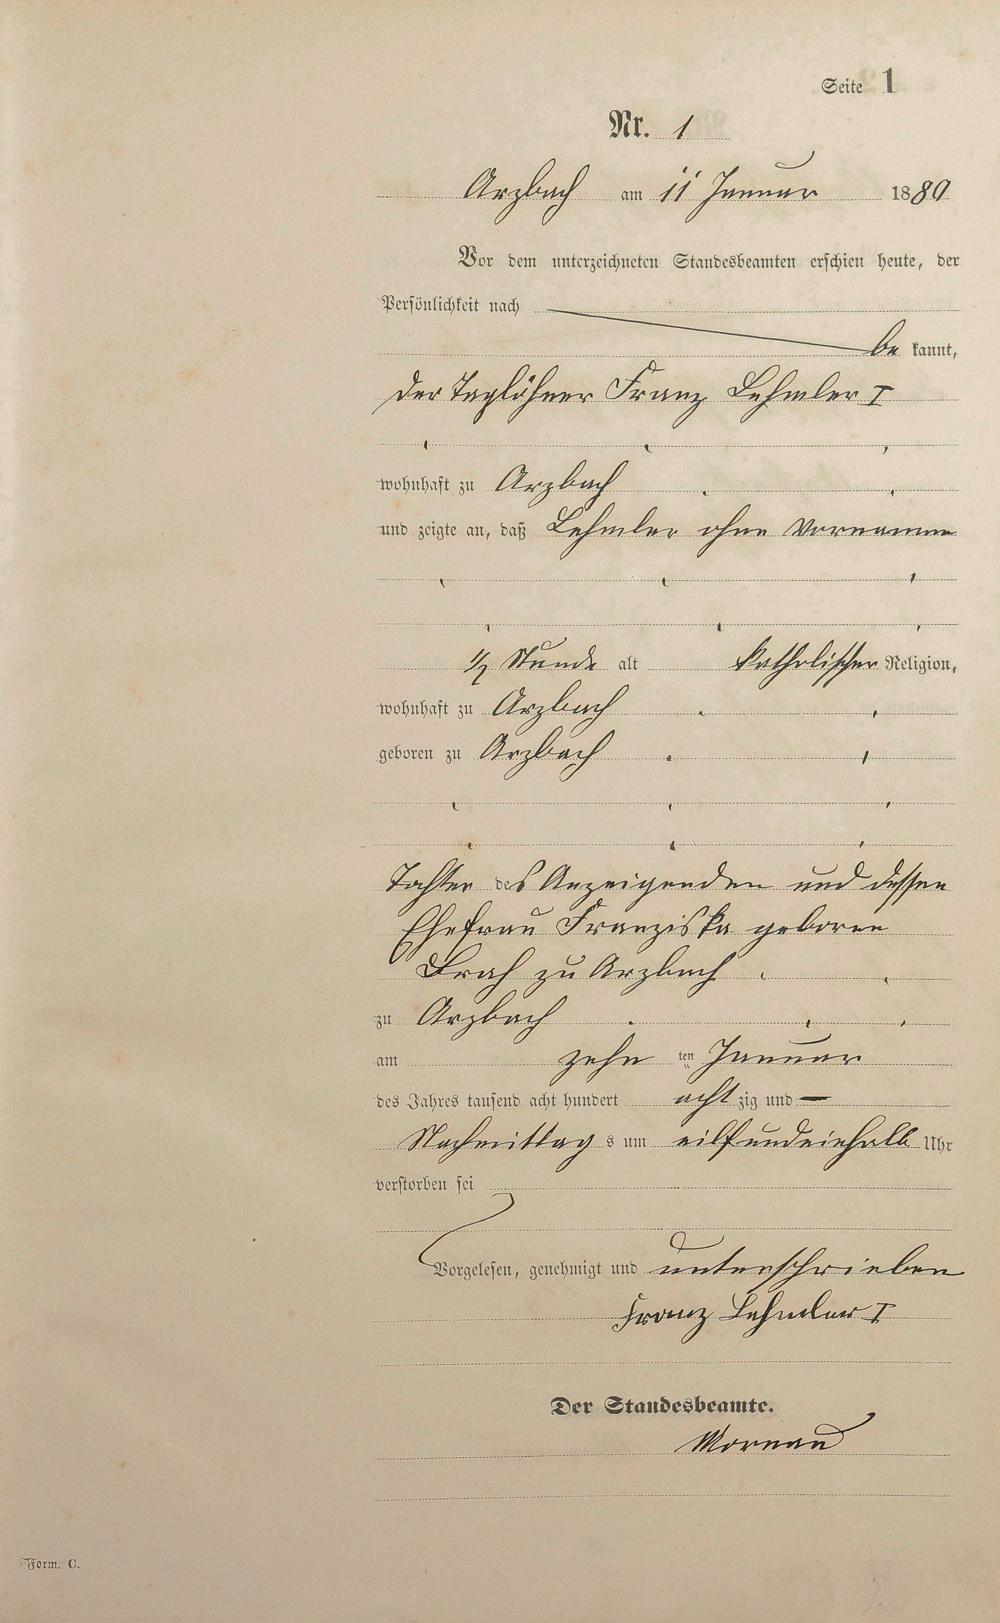 Seite 1
Nr. 1
Arzbach am 11 Januar 1880
Vor dem unterzeichneten Standesbeamten erschien heute, der
Persönlichkeit nach
be kannt,
der Taglöhner Franz Lehmler I
wohnhaft zu Arzbach
und zeigte an, daß Lehmler ohne Vornamen
1/2 Stunde alt katholischer Religion,
wohnhaft zu Arzbach
geboren zu Arzbach
Tochter des Anzeigenden und dessen
Ehefrau Franziska geborene
zu Arzbach
zu Arzbach
am zehn ten Januar
des Jahres tausend acht hundert acht zig und —
Nachmittag s um eilfundeinhalb Uhr
verstorben sei
Vorgelesen, genehmigt und unterschrieben
Franz Lehmler I
Der Standesbeamte.
Mornau
Form. C.